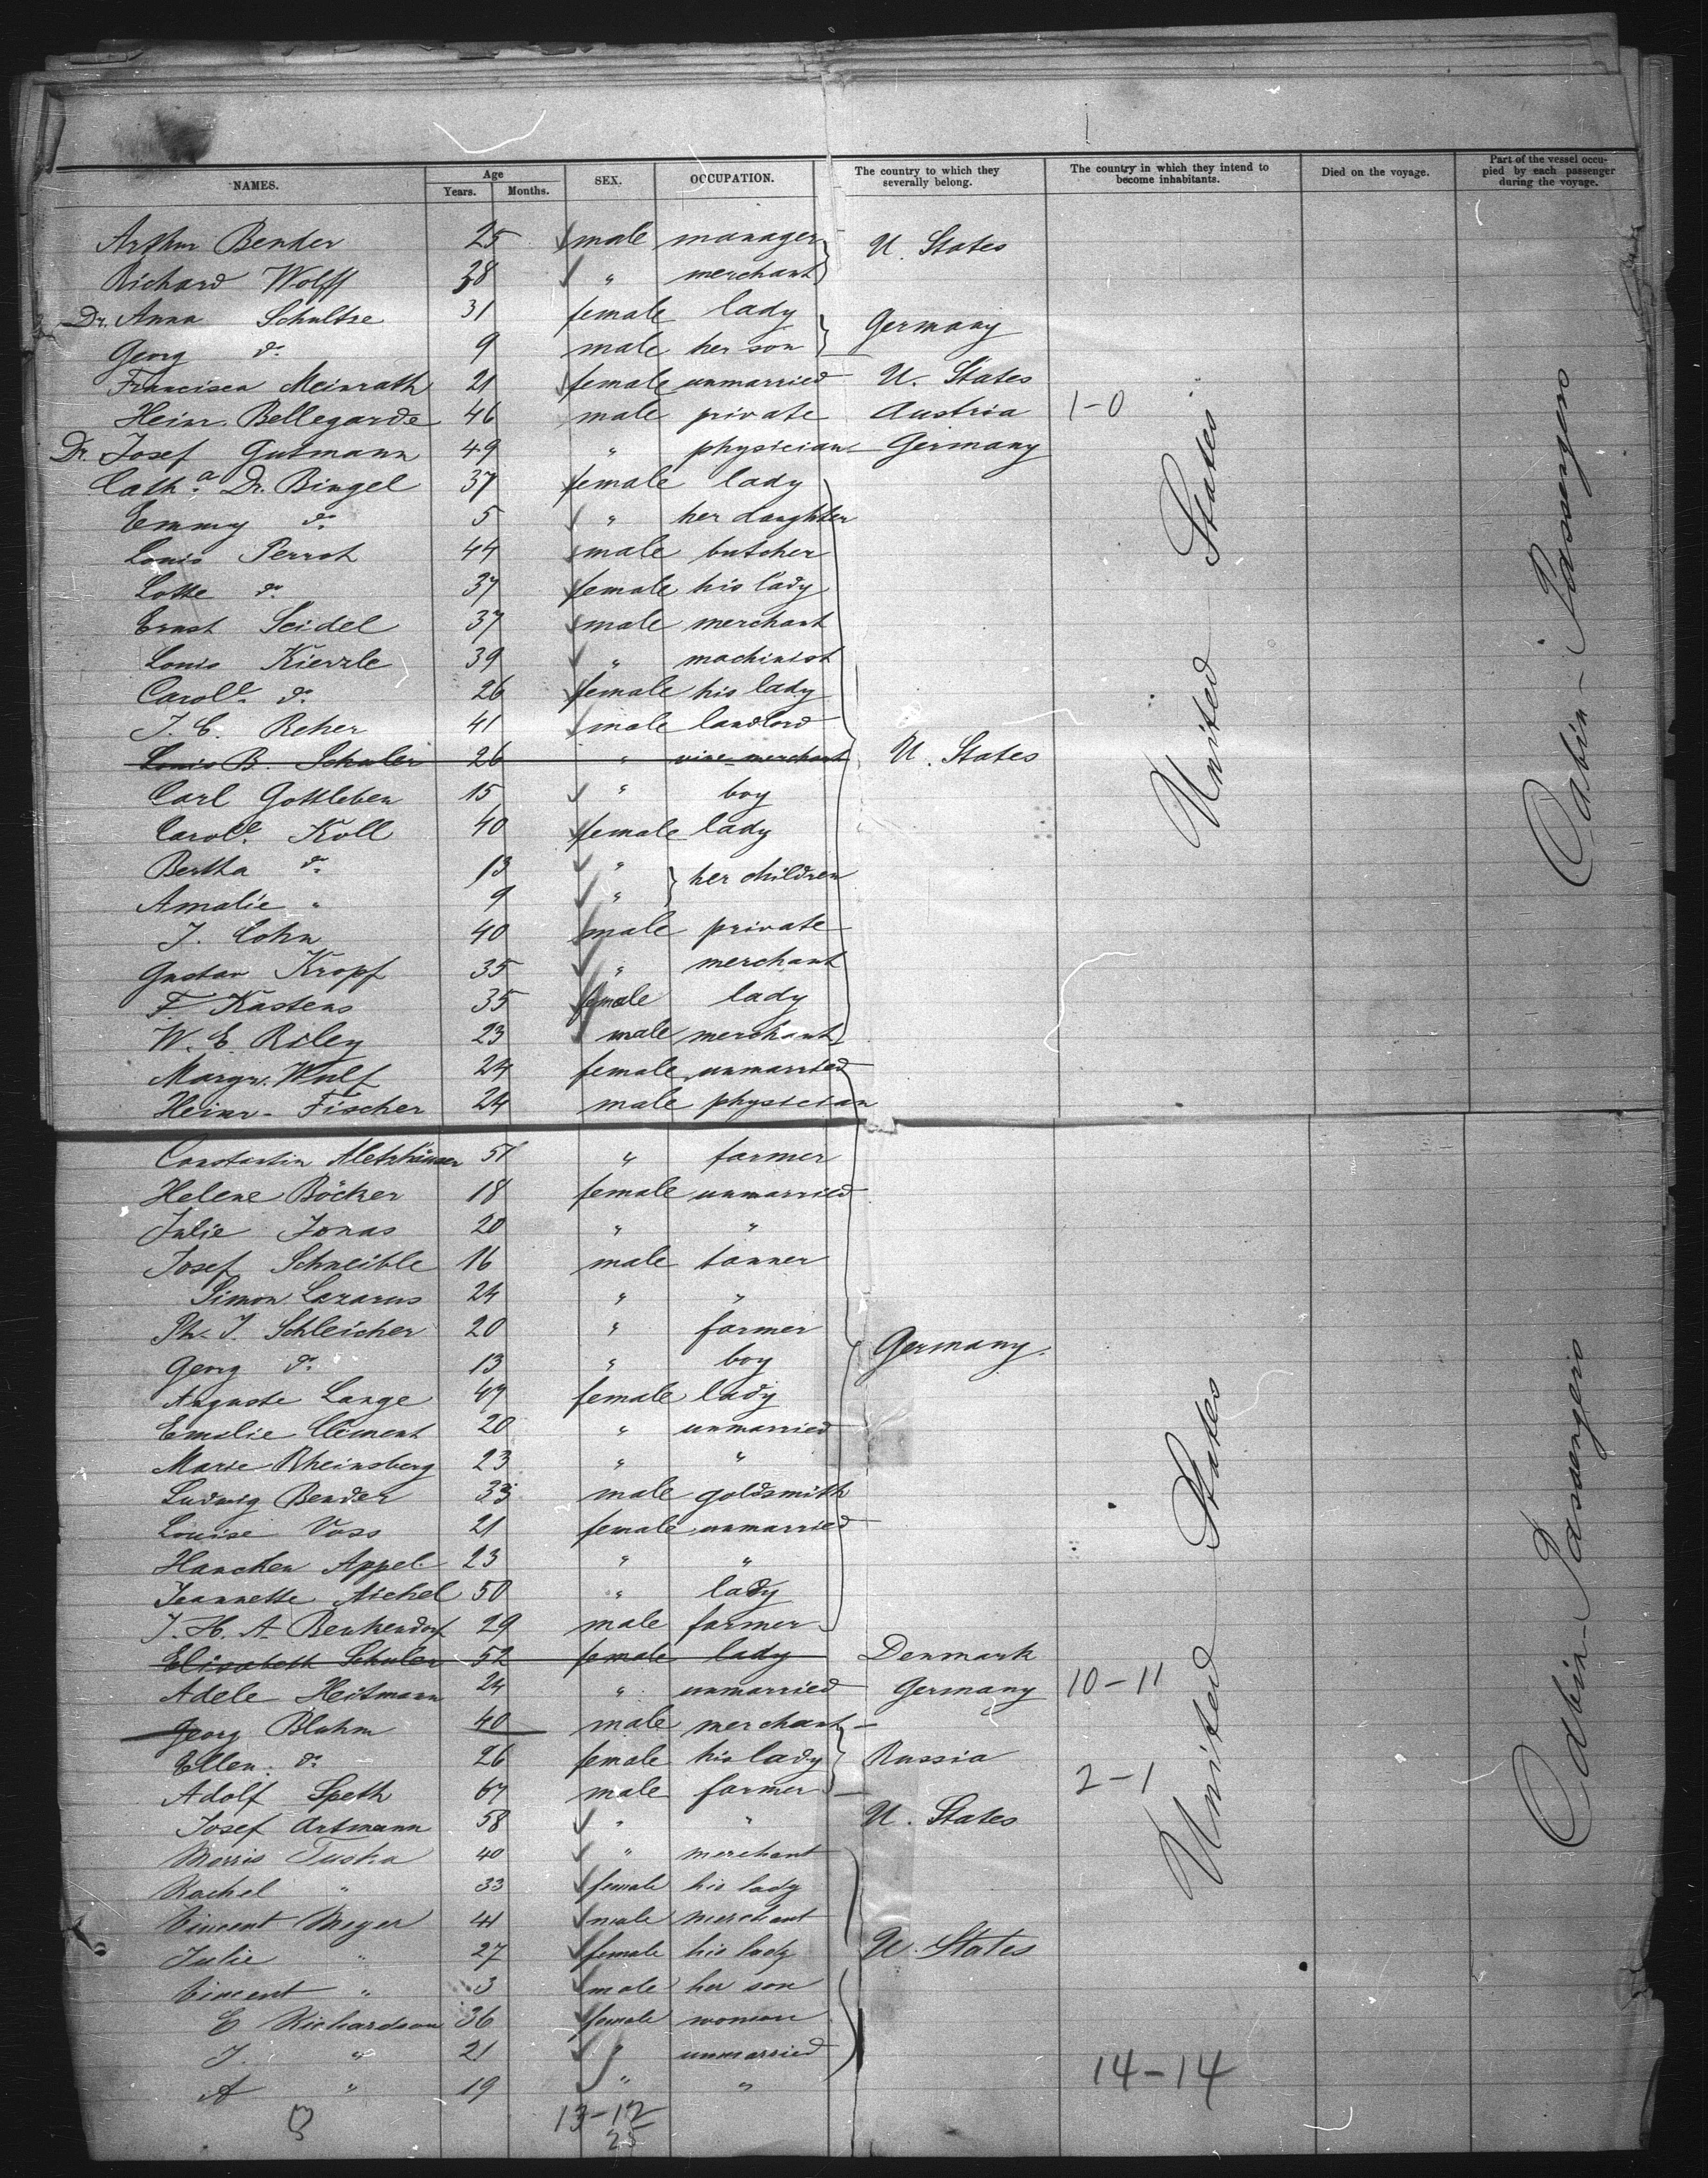 NAMES. Age Years. Months. SEX. OCCUPATION. The country to which they severally belong. The country in which they intend to become inhabitants. Died on the voyage. Part of the vessel occupied by each passenger during the voyage.
Arthur Bender 25 male manager U. States
Richard Wolff 38 " merchant
Dr. Anna Schultze 31 female lady Germany
Georg do 9 male her son
Francisca Meinrath 21 female unmarried U. States
Heinr. Bellegarde 46 male private Austria 1-0
Dr. Josef Gutmann 49 " physician Germany
Cath.a Dr. Bingel 37 female lady
Emmy do 5 " her daughter
Louis Perrot 44 male butcher
Lotte do 37 female his lady
Ernst Seidel 37 male merchant
Louis Kienzle 39 " machinist
Carole do 26 female his lady
J. C. Reher 41 male landlord
Louis B. Schuler 26 " vine-merchant U. States
Carl Gottleben 15 " boy
Carole Koll 40 female lady
Bertha do 13 " her children
Amalie " 9 "
J. Cohn 40 male private
Gustav Kropf 35 " merchant
F. Kastens 35 female lady
W. E. Riley 23 male merchant
Margr. Wulf 24 female unmarried
Heinr. Fischer 24 male physician
Constantin 51 " farmer
Helene Böcker 18 female unmarried
Julie Jonas 20 " "
Josef Schneible 16 male tanner
Simon Lazarus 24 " "
Ph. J. Schleicher 20 " farmer Germany.
Georg do 13 " boy
Auguste Lange 47 female lady
Emilie Clément 20 " unmarried
Marie Rheinsberg 23 " "
Ludwig Bender 33 male goldsmith
Louise Voss 21 female unmarried
Hanchen Appel 23 " "
Jeannette Aichel 50 " lady
J. H. A. Benkendorf 29 male farmer
Elisabeth Schuler 52 female lady Denmark
Adele Heitmann 24 " unmarried Germany 10-11
Georg Bluhm 40 male merchant
Ellen do 26 female his lady Russia
Adolf Speth 67 male farmer 2-1
Josef Artmann 58 " " U. States
Morris Tuska 40 " merchant
Rachel " 33 female his lady
Vincent Meyer 41 male merchant
Julie " 27 female his lady U. States
Vincent " 3 male her son
E Richardson 36 female woman
J. " 21 " unmarried
A " 19 " "
14-14
13-12
25
United States
Cabin-Passengers
United States
Cabin-Passengers